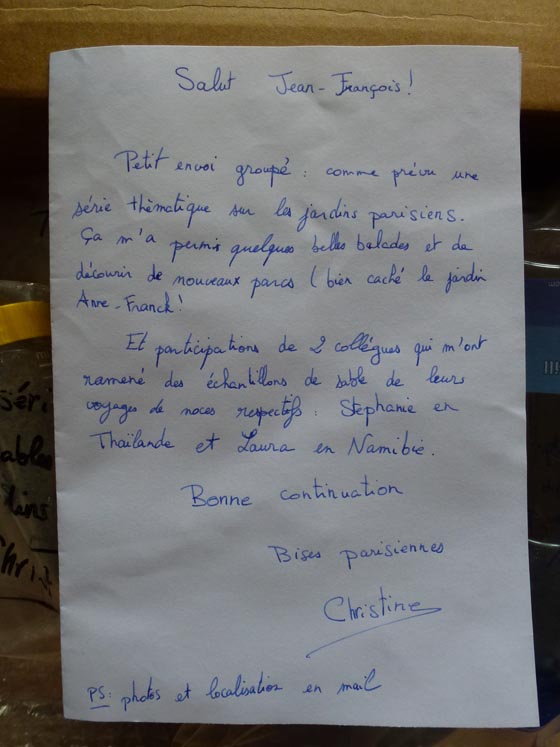 Salut Jean-François!
Petit envoi groupé : comme prévu une
série thèmatique sur les jardins parisiens.
Ça m'a permis quelques belles balades et de
découvrir de nouveaux parcs (bien caché le jardin
Anne-Franck!
Et participations de 2 collègues qui m'ont
ramené des échantillons de sable de leurs
voyages de noces respectifs : Stéphanie en
Thaïlande et Laura en Namibie.
Bonne continuation
Bises parisiennes
Christine
PS: photos et localisation en mail
séri